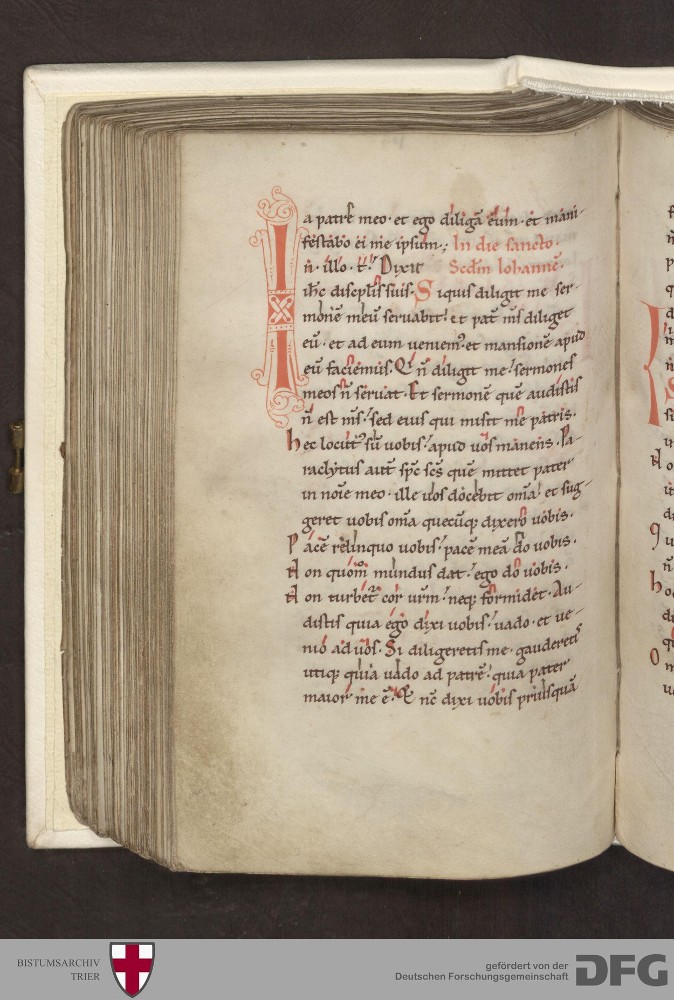 a patre meo · et ego diligā eum · et mani-
festabo ei me ipsum ·; In die sancto ·
IN · illo · t̄ · Dixit Scdm̄ Iohannē ·
ih̄c discipl̄is suis · Siquis diligit me ser-
monē meū seruabit · et pat̄ m̄s diliget
eū · et ad eum ueniem⁹ et mansionē apud
eū faciemus · Q̄ n̄ diligit me sermones
meos n̄ seruat · Et sermonē quē audistis
n̄ est m̄s · sed eius qui misit me patris ·
hec locut⁹ sū uobis apud uos manens · Pa-
raclytus aut̄ sp̄c sc̄s quē mittet pater
in noīe meo · ille uos docebit om̄a et sug-
geret uobis om̄a quecūq; dixero uobis ·
Pacē relinquo uobis pacē meā do uobis ·
Non quom̄ mundus dat ego do uobis ·
Non turbet᷑ cor ur̄m neq; formidet · Au-
distis quia ego dixi uobis uado · et ue-
nio ad uos · Si diligeretis me · gauderetis
utiq; quia uado ad patrē quia pater
maior me ē · Et nc̄ dixi uobis priusquā
BISTUMSARCHIV
TRIER
gefördert von der
Deutschen Forschungsgemeinschaft
DFG